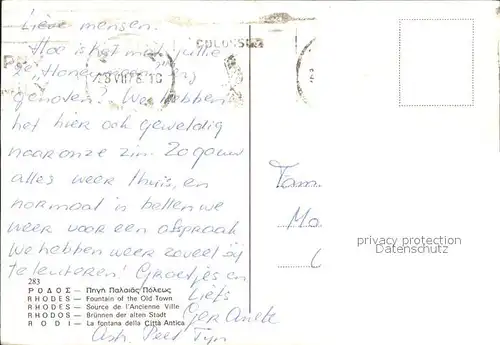 Lieve mensen.
Hoe is het met jullie
ze "Honeymoon" erg
genoten? We hebben
het hier ook geweldig
naar onze zin. Zo gauw
alles weer thuis, en
normaal is bellen we
weer voor een afspraak
We hebben weer zoveel bij
te leuteren! Groetjes en
Liefs
Ger Aneke
Peet
COLOSSUS
Fam.
Mo
privacy protection
Datenschutz
283
ΡΟΔΟΣ — Πηγή Παλαιᾶς Πόλεως
RHODES — Fountain of the Old Town
RHODES — Source de l'Ancienne Ville
RHODOS — Brünnen der alten Stadt
RODI — La fontana della Città Antica